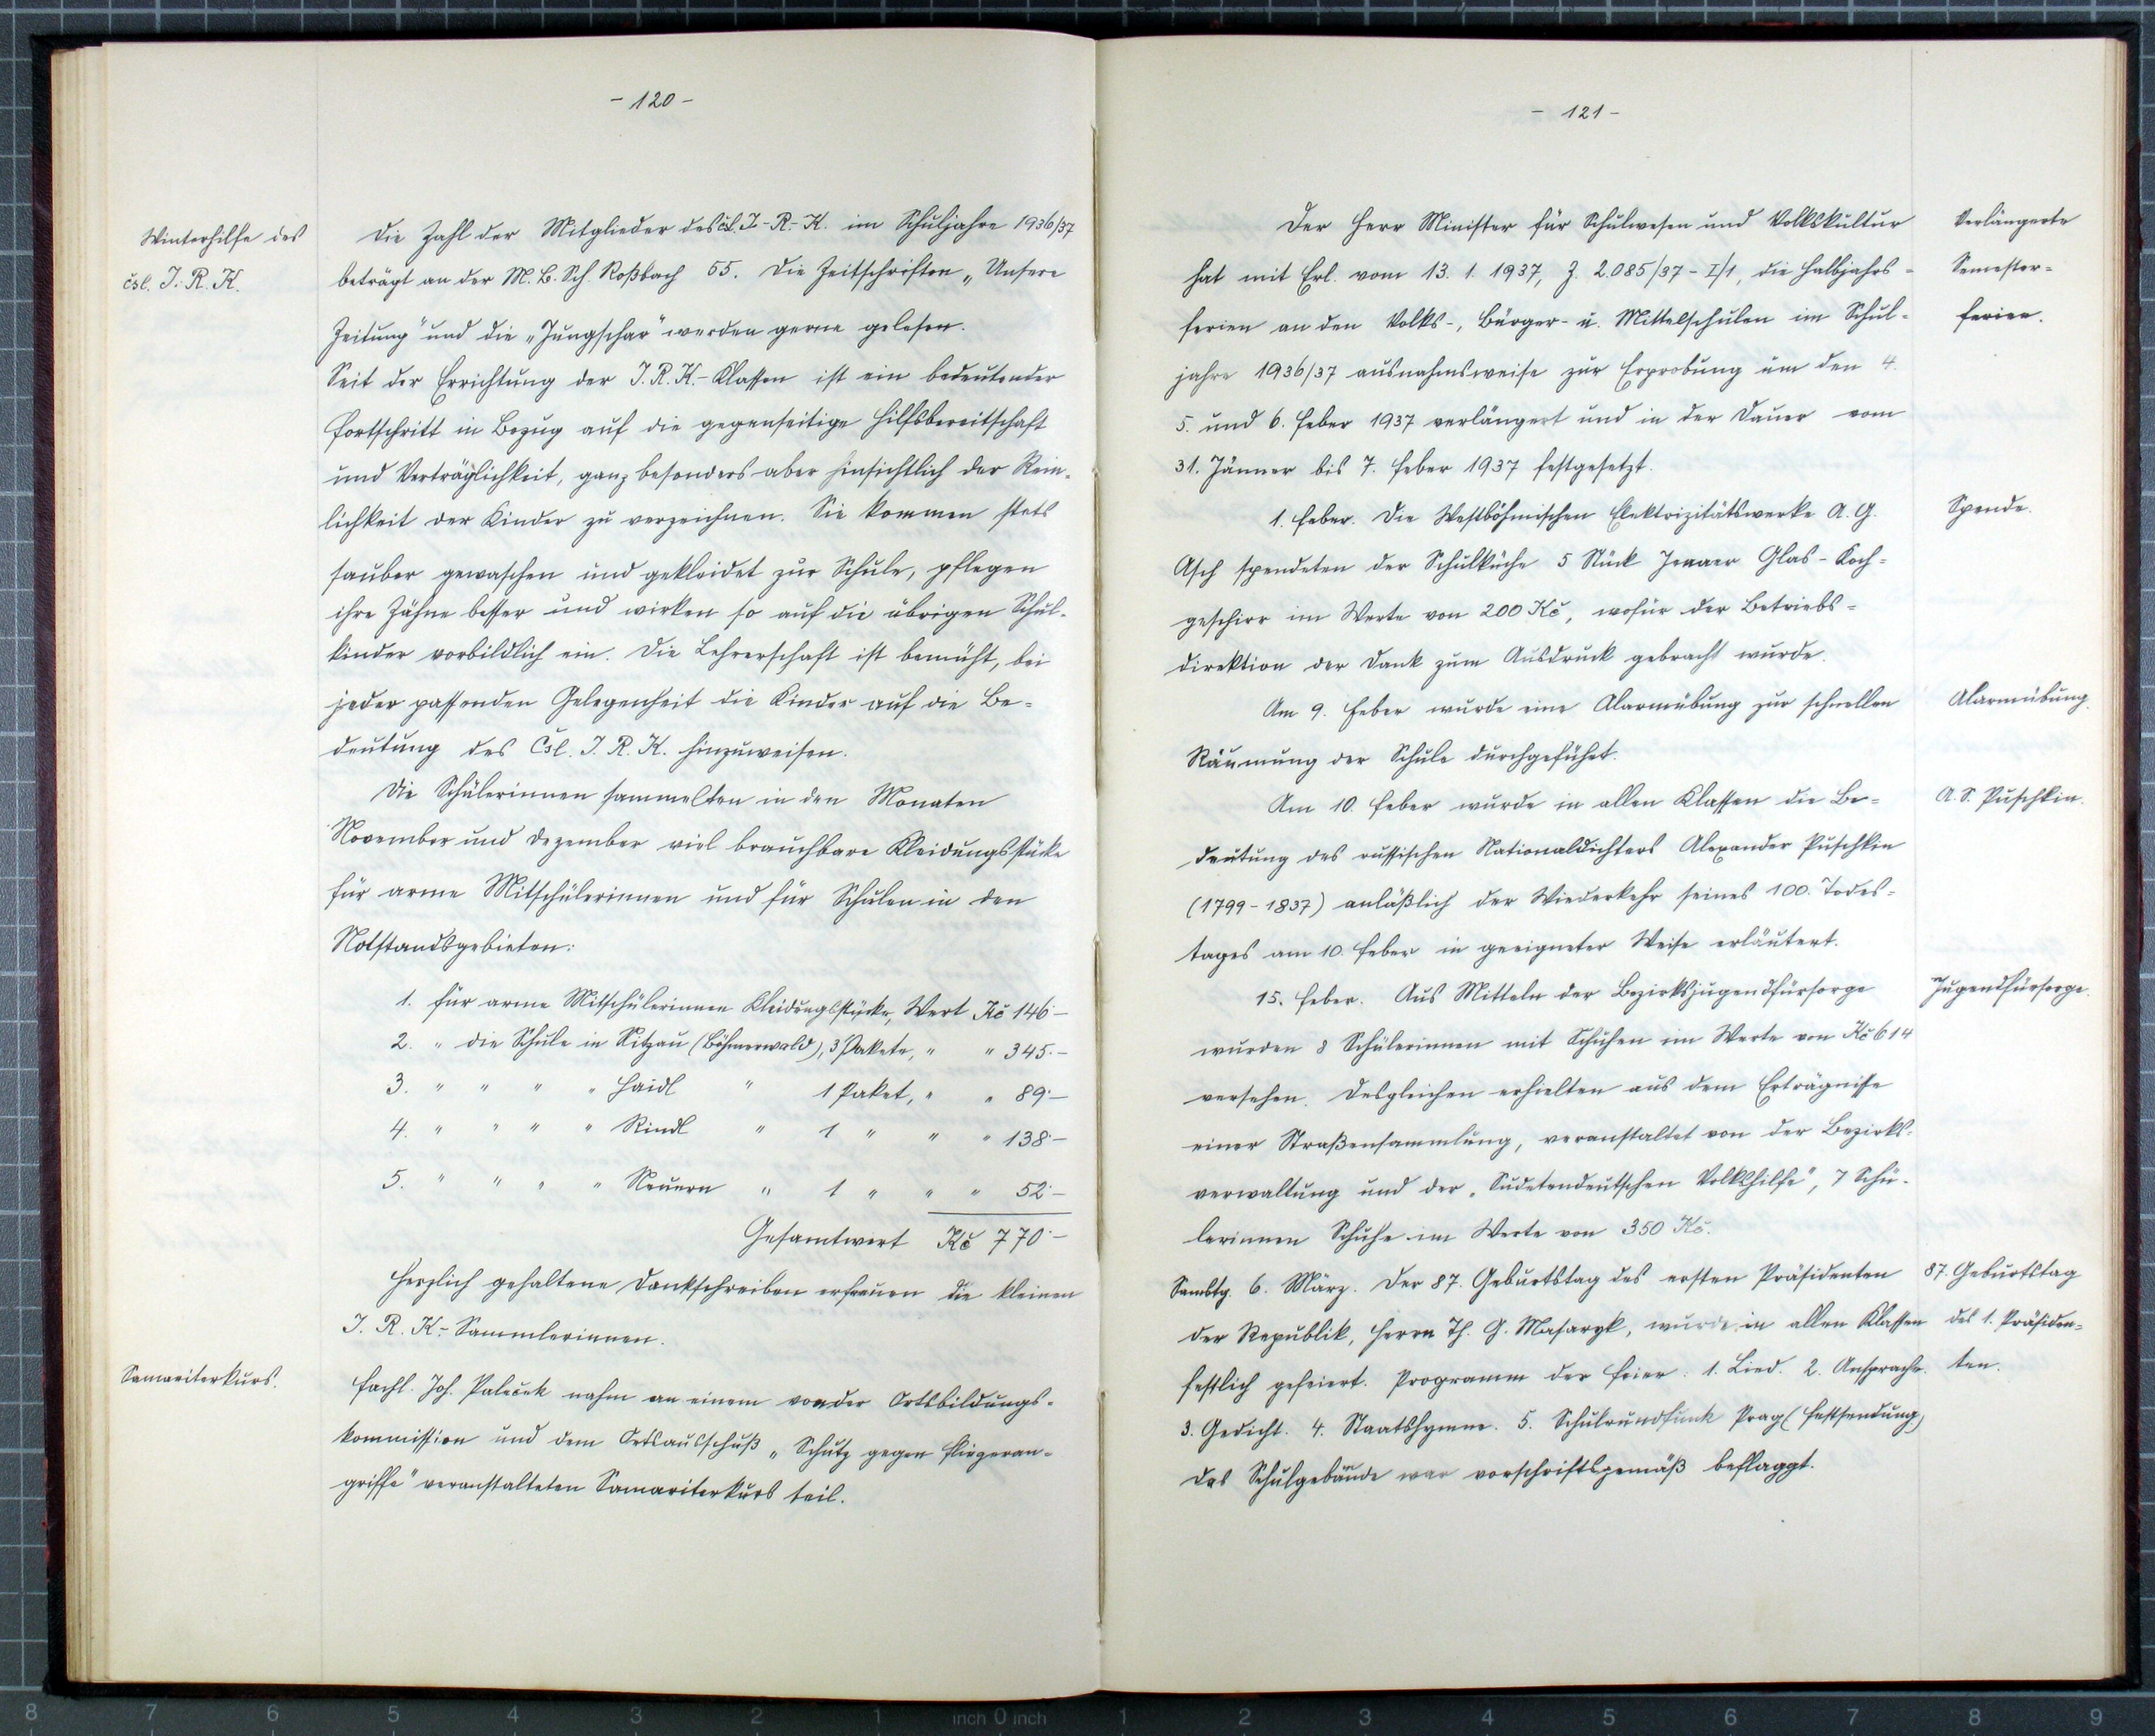 - 120 -
Winterhilfe des
čsl. J. R. K.
Die Zahl der Mitglieder des čsl. J.-R.-K. im Schuljahre 1936/37
beträgt an der M. B. Sch. Roßbach 55. Die Zeitschriften „Unsere
Zeitung" und die „Jungschar" werden gerne gelesen.
Seit der Errichtung der J. R. K.-Klassen ist ein bedeutender
Fortschritt in Bezug auf die gegenseitige Hilfsbereitschaft
und Verträglichkeit, ganz besonders aber hinsichtlich der Rein-
lichkeit der Kinder zu verzeichnen. Sie kommen stets
sauber gewaschen und gekleidet zur Schule, pflegen
ihre Zähne besser und wirken so auf die übrigen Schul-
kinder vorbildlich ein. Die Lehrerschaft ist bemüht, bei
jeder passenden Gelegenheit die Kinder auf die Be-
deutung des Čsl. J. R. K. hinzuweisen.
Die Schülerinnen sammelten in den Monaten
November und Dezember viel brauchbare Kleidungsstücke
für arme Mitschülerinnen und für Schulen in den
Notstandsgebieten:
1. für arme Mitschülerinnen Kleidungsstücke, Wert Kč 146·–
2. " die Schule in Sitzau (Böhmerwald), 3 Pakete, " " 345.–
3. " " " " Haidl " 1 Paket, " " 89·–
4. " " " " Rindl " 1 " " " 138·–
5. " " " " Neuern " 1 " " " 52·–
Gesamtwert Kč 770·–
Herzlich gehaltene Dankschreiben erfreuen die kleinen
J. R. K.-Sammlerinnen.
Samariterkurs.
Fachl. Joh. Paleček nahm an einem von der Ortsbildungs-
kommission und dem Ortsausschuß „Schutz gegen Fliegeran-
griffe" veranstalteten Samariterkurs teil.
- 121 -
Der Herr Minister für Schulwesen und Volkskultur
hat mit Erl. vom 13. 1. 1937, Z. 2.085/37 - I/1, die Halbjahrs-
ferien an den Volks-, Bürger- u. Mittelschulen im Schul-
jahre 1936/37 ausnahmsweise zur Erprobung um den 4.
5. und 6. Feber 1937 verlängert und in der Dauer vom
31. Jänner bis 7. Feber 1937 festgesetzt.
Verlängerte
Semester-
ferien.
1. Feber. Die Westböhmischen Elektrizitätswerke A. G.
Asch spendeten der Schulküche 5 Stück Jenaer Glas-Koch-
geschirr im Werte von 200 Kč, wofür der Betriebs-
direktion der Dank zum Ausdruck gebracht wurde.
Spende.
Am 9. Feber wurde eine Alarmübung zur schnellen
Räumung der Schule durchgeführt.
Alarmübung.
Am 10. Feber wurde in allen Klassen die Be-
deutung des russischen Nationaldichters Alexander Puschkin
(1799 - 1837) anläßlich der Wiederkehr seines 100. Todes-
tages am 10. Feber in geeigneter Weise erläutert.
A. S. Puschkin.
15. Feber. Aus Mitteln der Bezirksjugendfürsorge
wurden 8 Schülerinnen mit Schuhen im Werte von Kč 614
versehen. Desgleichen erhielten aus dem Erträgnisse
einer Straßensammlung, veranstaltet von der Bezirks-
verwaltung und der „Sudetendeutschen Volkshilfe", 7 Schü-
lerinnen Schuhe im Werte von 350 Kč.
Jugendfürsorge.
Sambtg. 6. März. Der 87. Geburtstag des ersten Präsidenten
der Republik, Herrn Th. G. Masaryk, wurde in allen Klassen
festlich gefeiert. Programm der Feier: 1. Lied. 2. Ansprache.
3. Gedicht. 4. Staatshymne. 5. Schulrundfunk Prag (Festsendung)
Das Schulgebäude war vorschriftsgemäß beflaggt.
87. Geburtstag
des 1. Präsiden-
ten.
8 7 6 5 4 3 2 1 inch 0 inch 1 2 3 4 5 6 7 8 9